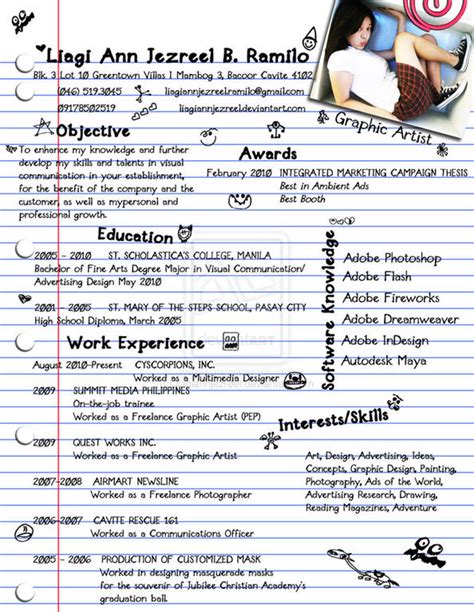 Liagi Ann Jezreel B. Ramilo
Blk. 3 Lot 10 Greentown Villas 1 Mambog 3, Bacoor Cavite 4102
(046) 519.3045
liagiannjezreelramilo@gmail.com
09178502519
liagiannjezreel.deviantart.com
Graphic Artist
Objective
To enhance my knowledge and further
develop my skills and talents in visual
communication in your establishment,
for the benefit of the company and the
customer, as well as mypersonal and
professional growth.
Awards
February 2010 INTEGRATED MARKETING CAMPAIGN THESIS
Best in Ambient Ads
Best Booth
Education
2005 - 2010 ST. SCHOLASTICA'S COLLEGE, MANILA
Bachelor of Fine Arts Degree Major in Visual Communication/
Advertising Design May 2010
2001 - 2005 ST. MARY OF THE STEPS SCHOOL, PASAY CITY
High School Diploma, March 2005
Software Knowledge
Adobe Photoshop
Adobe Flash
Adobe Fireworks
Adobe Dreamweaver
Adobe InDesign
Autodesk Maya
Work Experience
August 2010-Present CYSCORPIONS, INC.
Worked as a Multimedia Designer
2009 SUMMIT MEDIA PHILIPPINES
On-the-job trainee
Worked as a Freelance Graphic Artist (PEP)
2009 QUEST WORKS INC.
Worked as a Freelance Graphic Artist
2007-2008 AIRMART NEWSLINE
Worked as a Freelance Photographer
2006-2007 CAVITE RESCUE 161
Worked as a Communications Officer
2005 - 2006 PRODUCTION OF CUSTOMIZED MASK
Worked in designing masquerade masks
for the souvenir of Jubilee Christian Academy's
graduation ball.
Interests/Skills
Art, Design, Advertising, Ideas,
Concepts, Graphic Design, Painting,
Photography, Ads of the World,
Advertising Research, Drawing,
Reading Magazines, Adventure